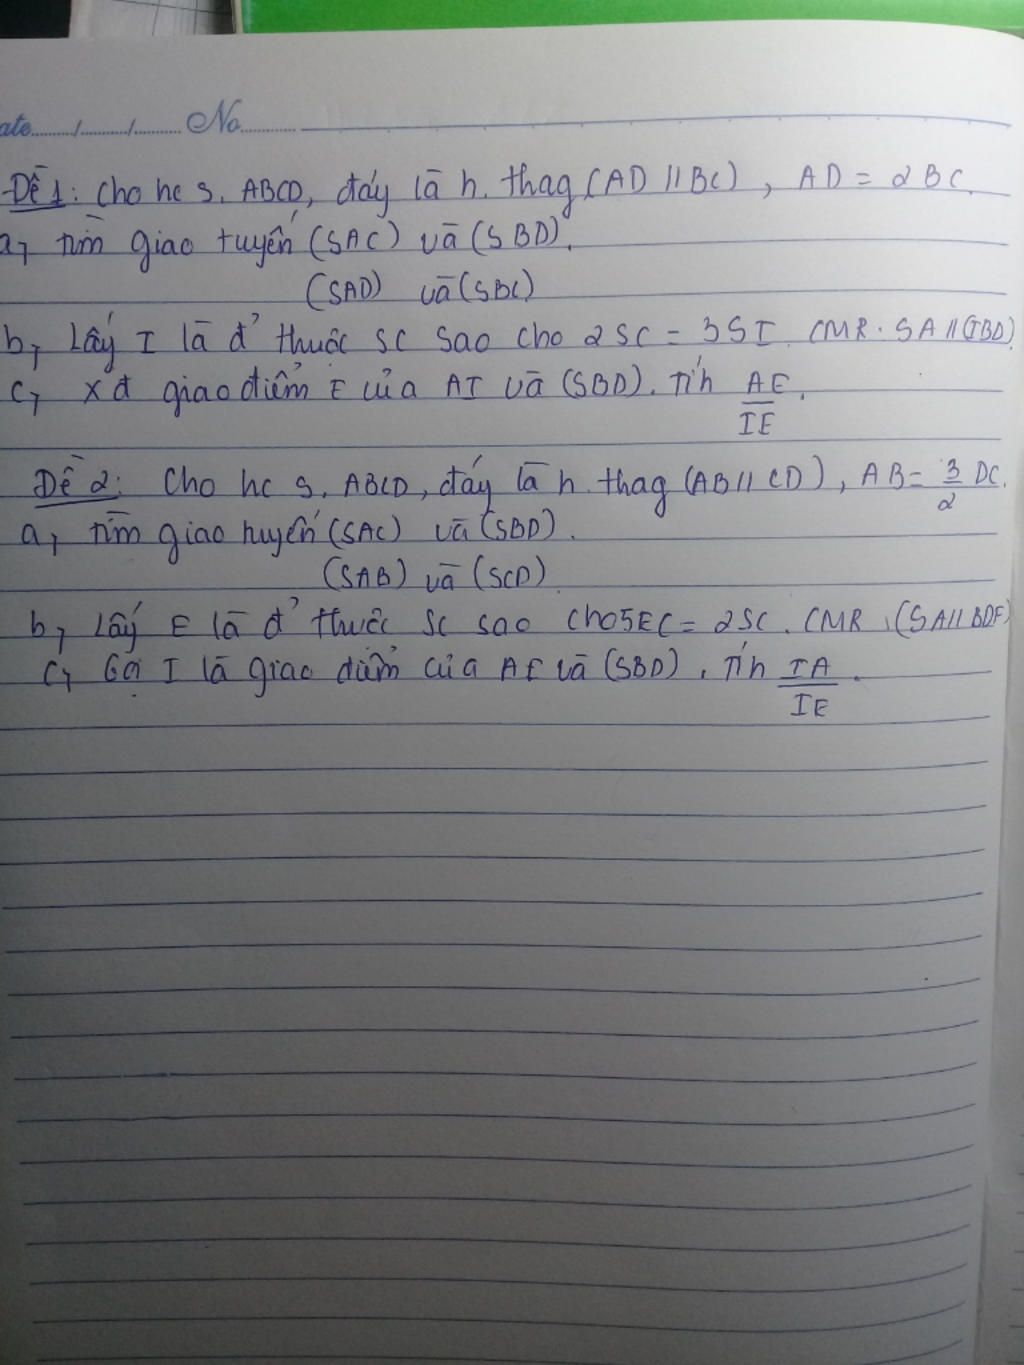 ate....../....../...... No.........
Đề 1: Cho hc S. ABCD, đáy là h. thag (AD // BC), AD = 2BC.
a, tìm giao tuyến (SAC) và (SBD).
(SAD) và (SBC)
b, Lấy I là đ' thuộc SC sao cho 2SC = 3SI. CMR. SA // (IBD)
c, xđ giao điểm E của AI và (SBD). Tính AE/IE.
Đề 2: Cho hc S. ABCD, đáy là h. thag (AB // CD), AB = 3/2 DC.
a, tìm giao tuyến (SAC) và (SBD).
(SAB) và (SCD)
b, Lấy E là đ' thuộc SC sao cho 5EC = 2SC. CMR (SA // BDE)
c, Gọi I là giao điểm của AE và (SBD). Tính IA/IE.